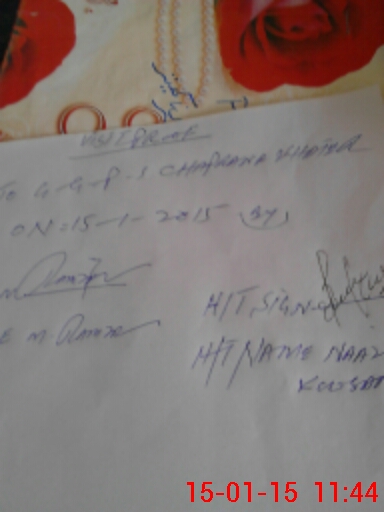 VISIT PROOF
TO G-G-P-S CHAPRANA KHATER
ON: 15-1-2015 (By)
E M. Ramzan
H/T SIGN
H/T NAME NAAZ
KOUSAR
15-01-15 11:44